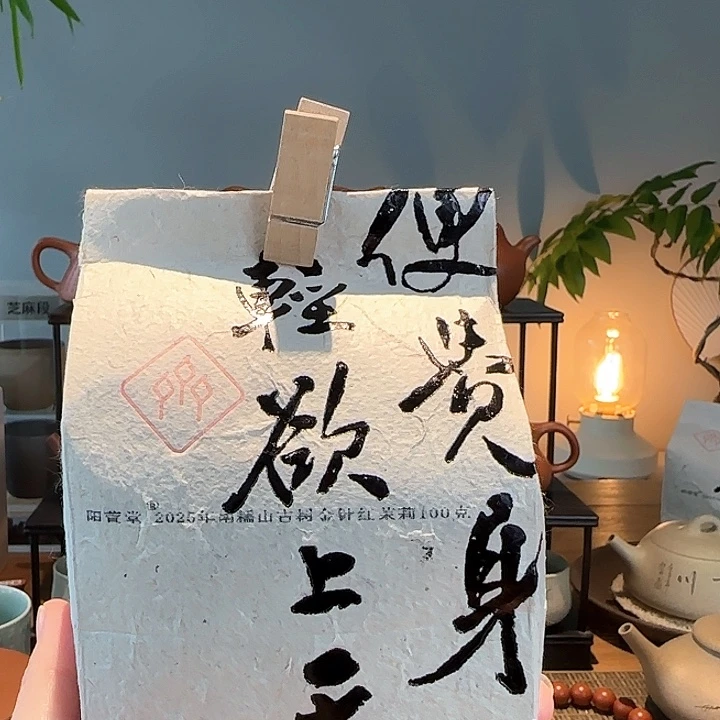 便覺身
輕欲上天
阳萱堂®2025年南糯山古树金针红茉莉100克
芝麻段